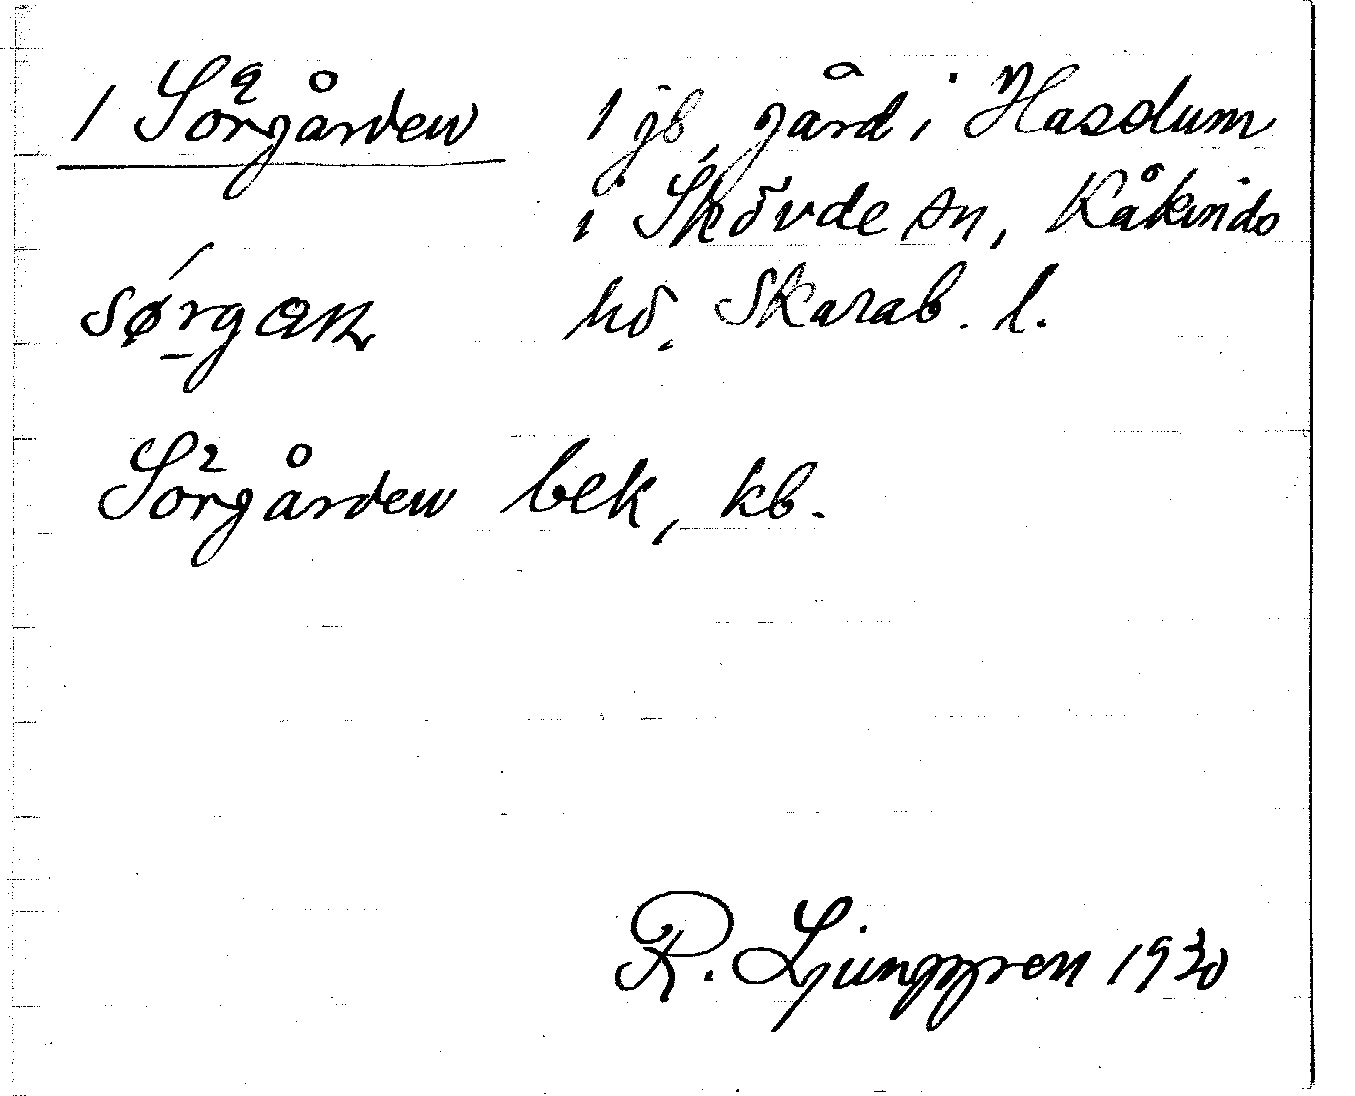 1 Sörgården 1 jb. gård i Hasslum
i Skövde sn, Kåkinds
sørgan hd. Skarab. l.
Sörgården bek, kb.
R. Ljunggren 1930